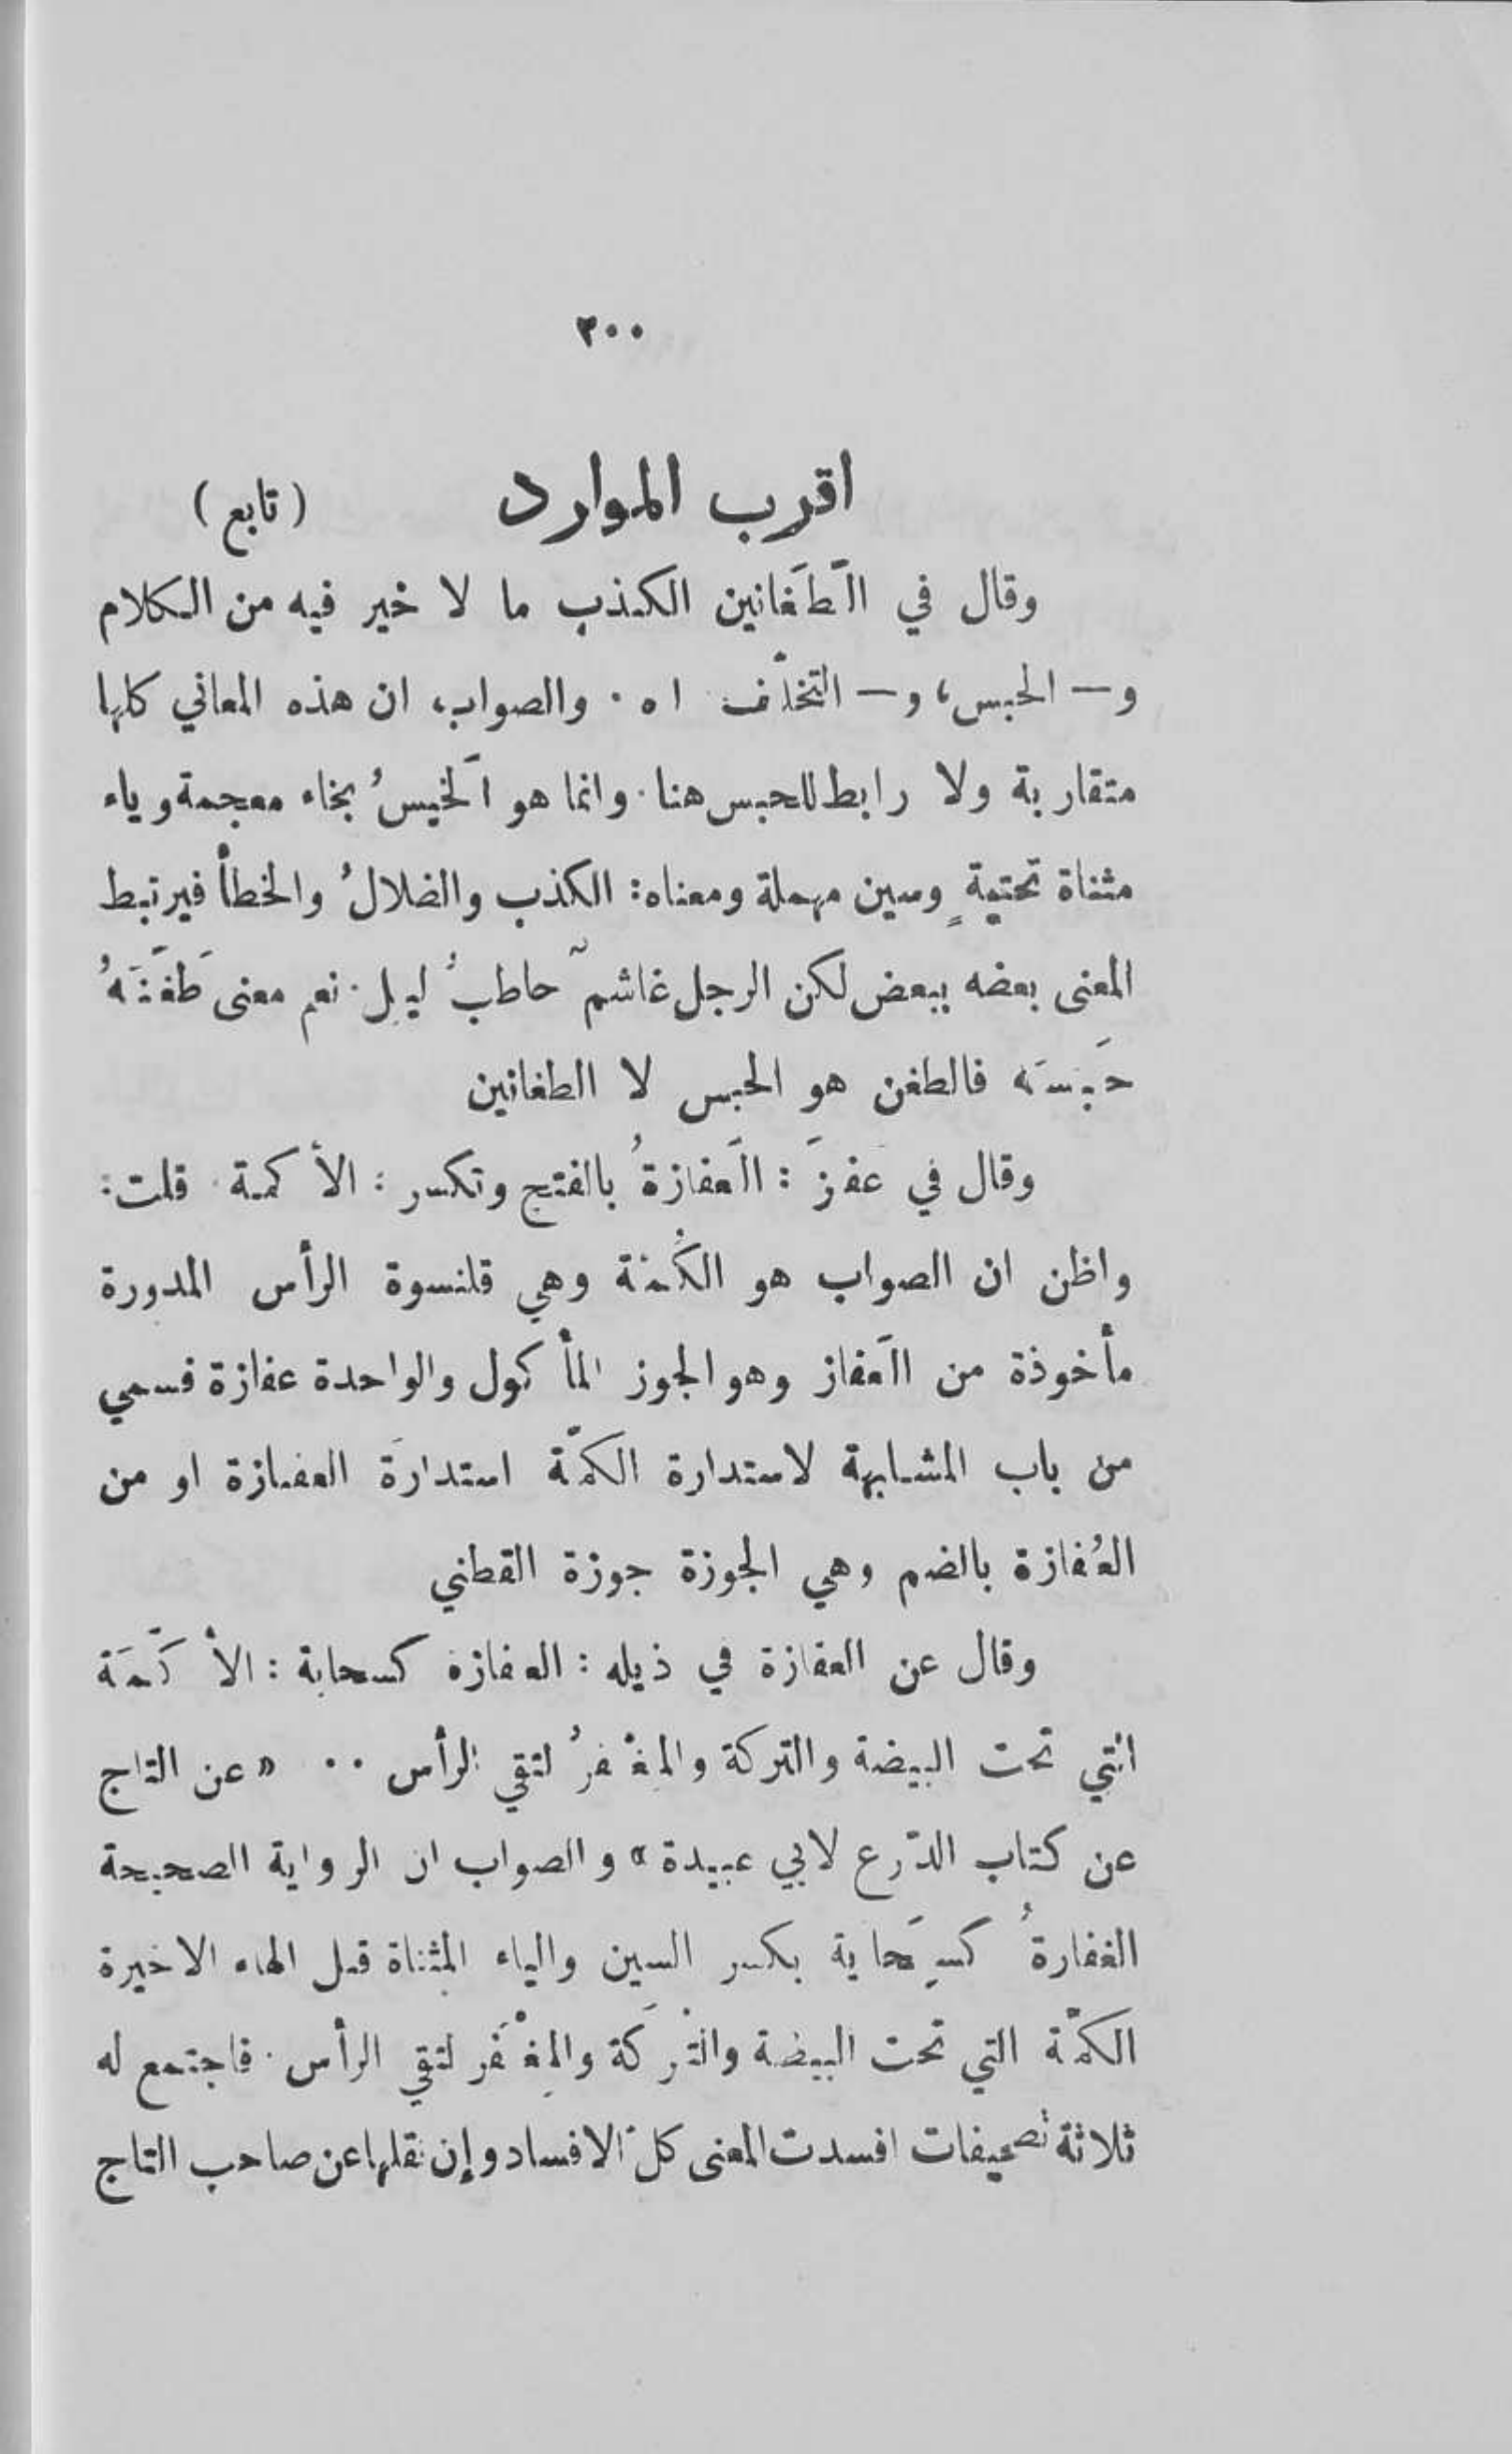 ٢٠٠
اقرب الموارد (تابع)
وقال في الطَّغَانين الكذب ما لا خير فيه من الكلام
و— الحبس، و— التخلّف اه · والصواب، ان هذه المعاني كلها
متقاربة ولا رابط للحبس هنا · وانما هو الَخيسُ بخاء معجمة وياء
مثناة تحتيةٍ وسين مهملة ومعناه: الكذب والضلالُ والخطأُ فيرتبط
المعنى بعضه ببعض لكن الرجل غاشم حاطبُ ليل · نعم معنى طَغَنَهُ
حَبَسَه فالطغن هو الحبس لا الطغانين
وقال في عَفَزَ : العَفازةُ بالفتح وتكسر : الأكمة · قلت:
واظن ان الصواب هو الكُمَّة وهي قلنسوة الرأس المدورة
مأخوذة من العَفاز وهو الجوز المأكول والواحدة عفازة فسمي
من باب المشابهة لاستدارة الكمّة استدارةَ العفازة او من
العُفازة بالضم وهي الجوزة جوزة القطني
وقال عن العفازة في ذيله : العفازة كسحابة : الأكَمَة
التي تحت البيضة والتركة والمِغْفرُ لتقي الرأس ·· « عن التاج
عن كتاب الدّرع لابي عبيدة » والصواب ان الرواية الصحيحة
الغفارةُ كسِحَاية بكسر السين والياء المثناة قبل الهاء الاخيرة
الكمّة التي تحت البيضة والتَّرْكة والمِغْفَر لتقي الرأس · فاجتمع له
ثلاثة تصحيفات افسدت المعنى كلَّ الافساد وإن نقلها عن صاحب التاج